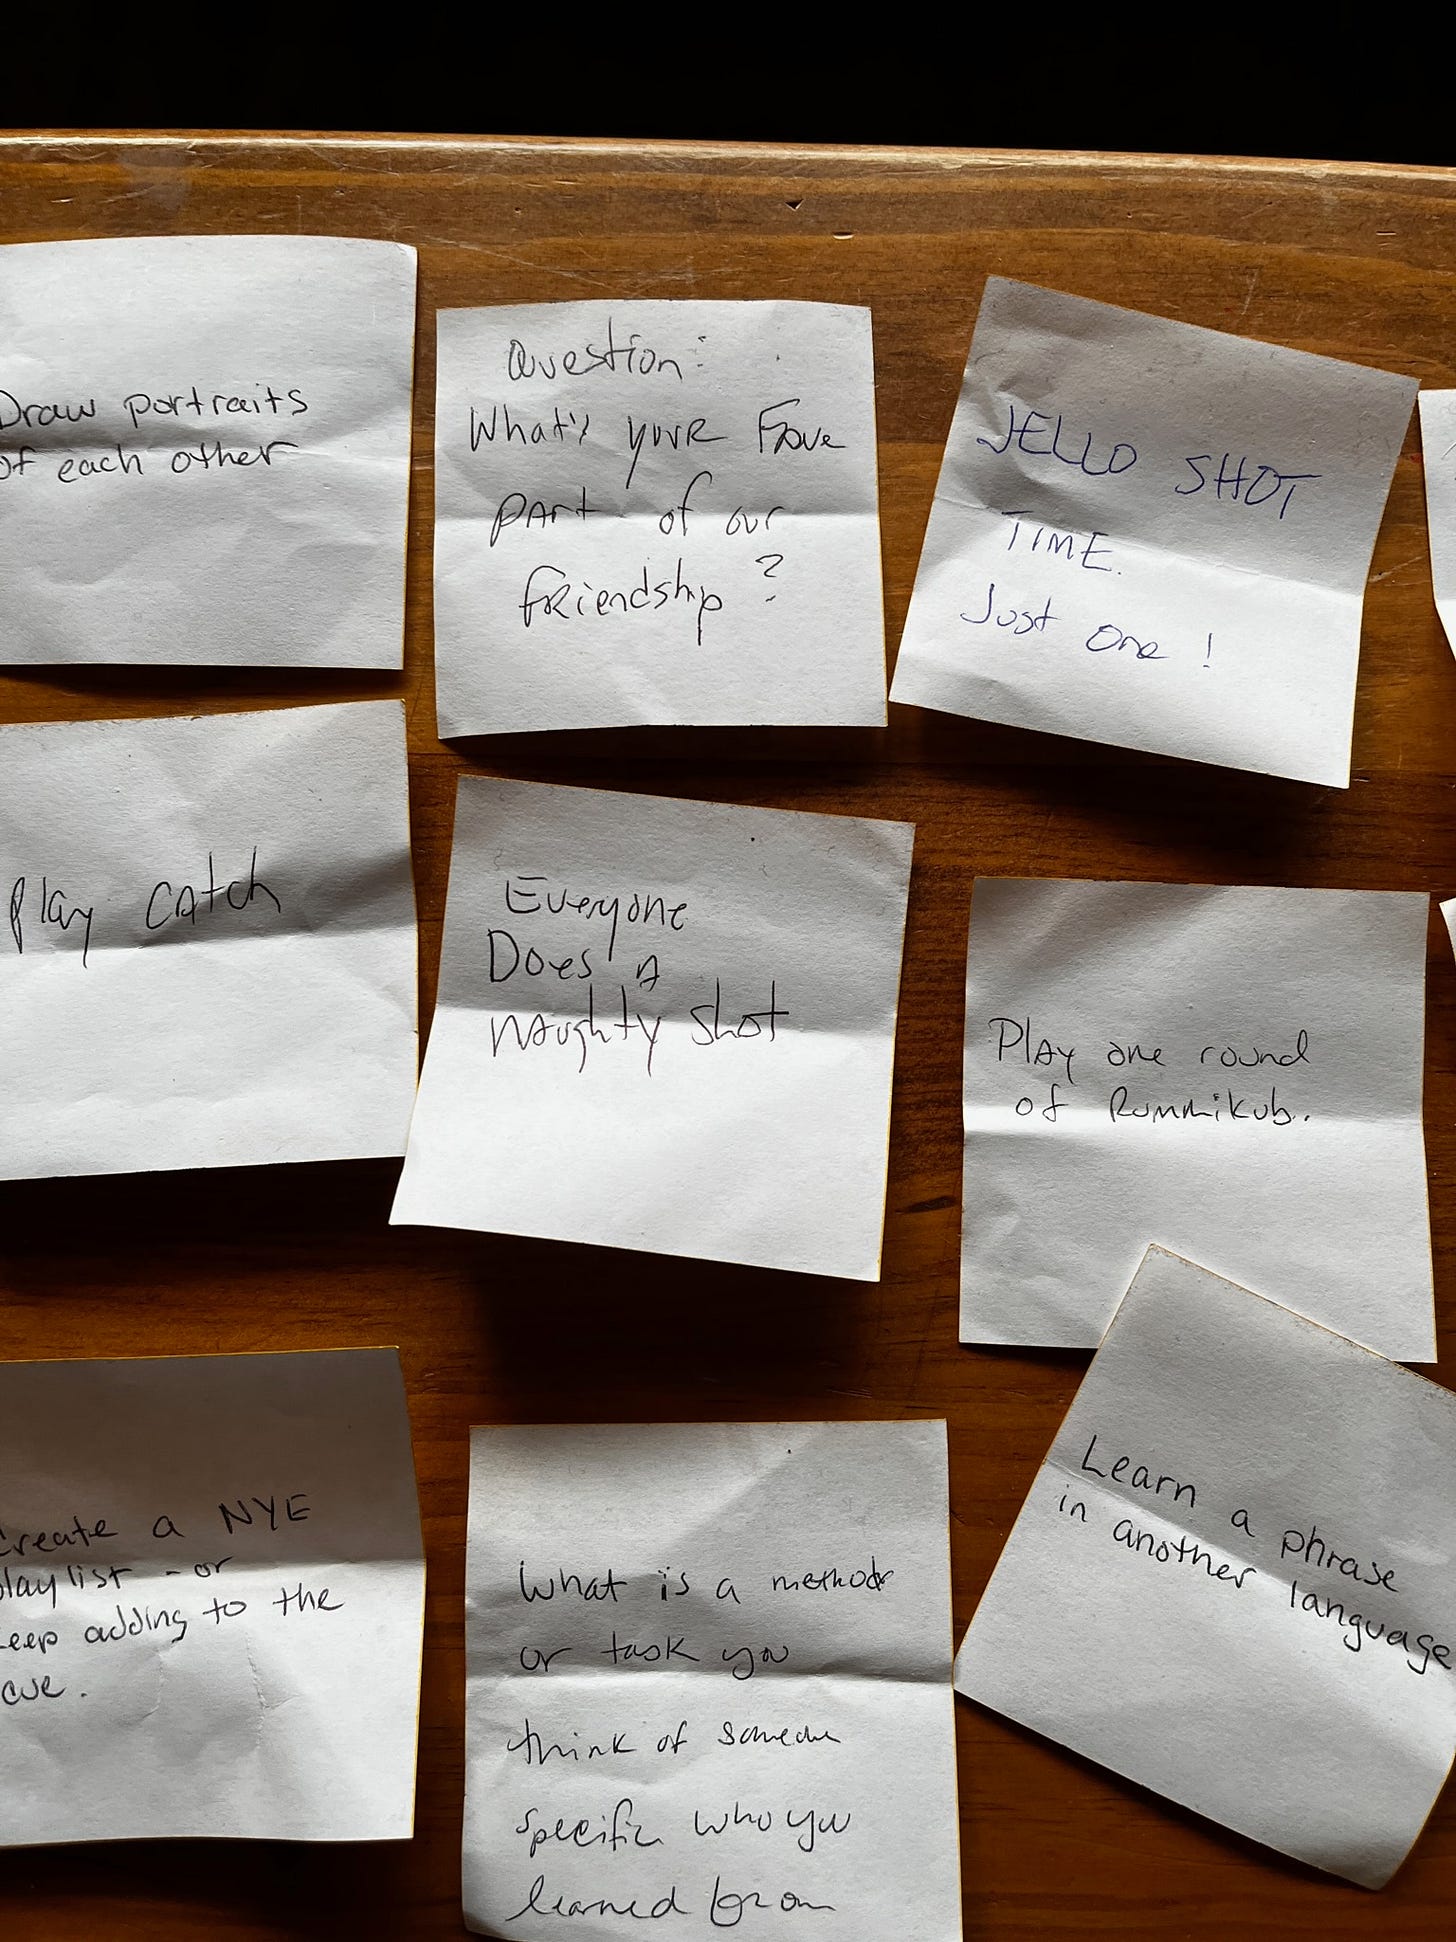 Draw portraits
of each other
Question:
What's your Fave
part of our
friendship?
JELLO SHOT
TIME.
Just one!
Play catch
Everyone
Does a
naughty shot
Play one round
of Rummikub.
Create a NYE
playlist - or
keep adding to the
Learn a phrase
in another language
What is a method
or task you
think of someone
specific who you
learned from